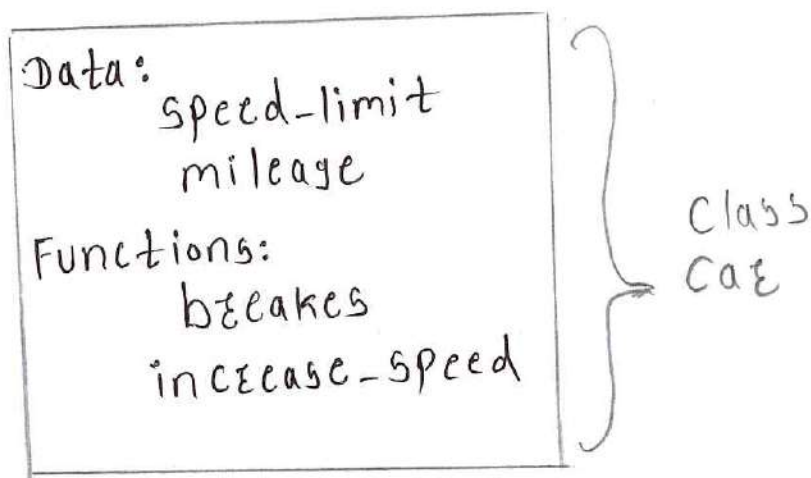 Data:
speed-limit
mileage
Functions:
breakes
increase-speed
Class
Car